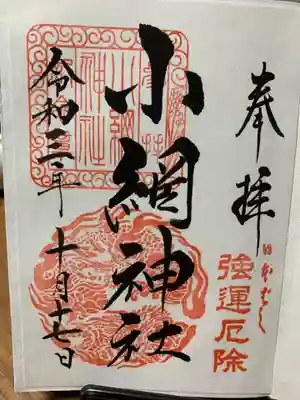 奉拝
日本ばし
強運厄除
小網神社
小網
神社
令和三年 十月十七日